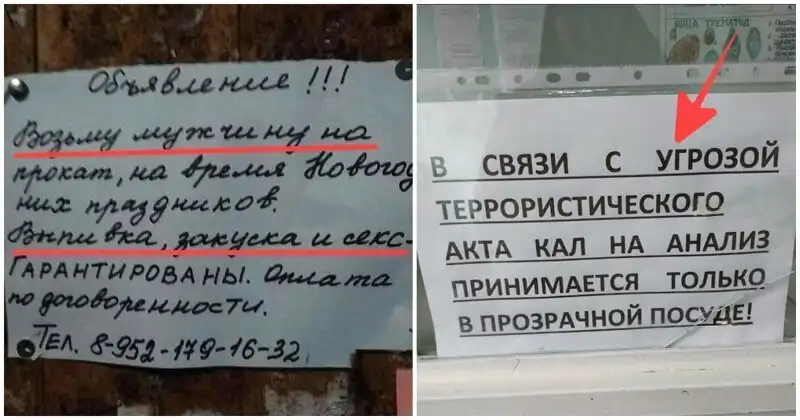 Объявление !!!
Возьму мужчину на
прокат, на время Новогод
них праздников.
Выпивка, закуска и секс-
ГАРАНТИРОВАНЫ. Оплата
по договоренности.
Тел. 8-952-179-16-32
В СВЯЗИ С УГРОЗОЙ
ТЕРРОРИСТИЧЕСКОГО
АКТА КАЛ НА АНАЛИЗ
ПРИНИМАЕТСЯ ТОЛЬКО
В ПРОЗРАЧНОЙ ПОСУДЕ!